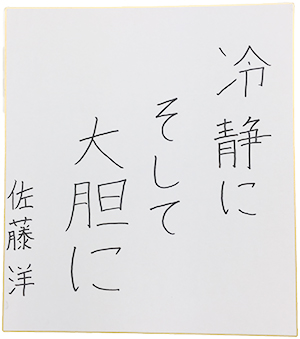 冷静に
そして
大胆に
佐藤洋